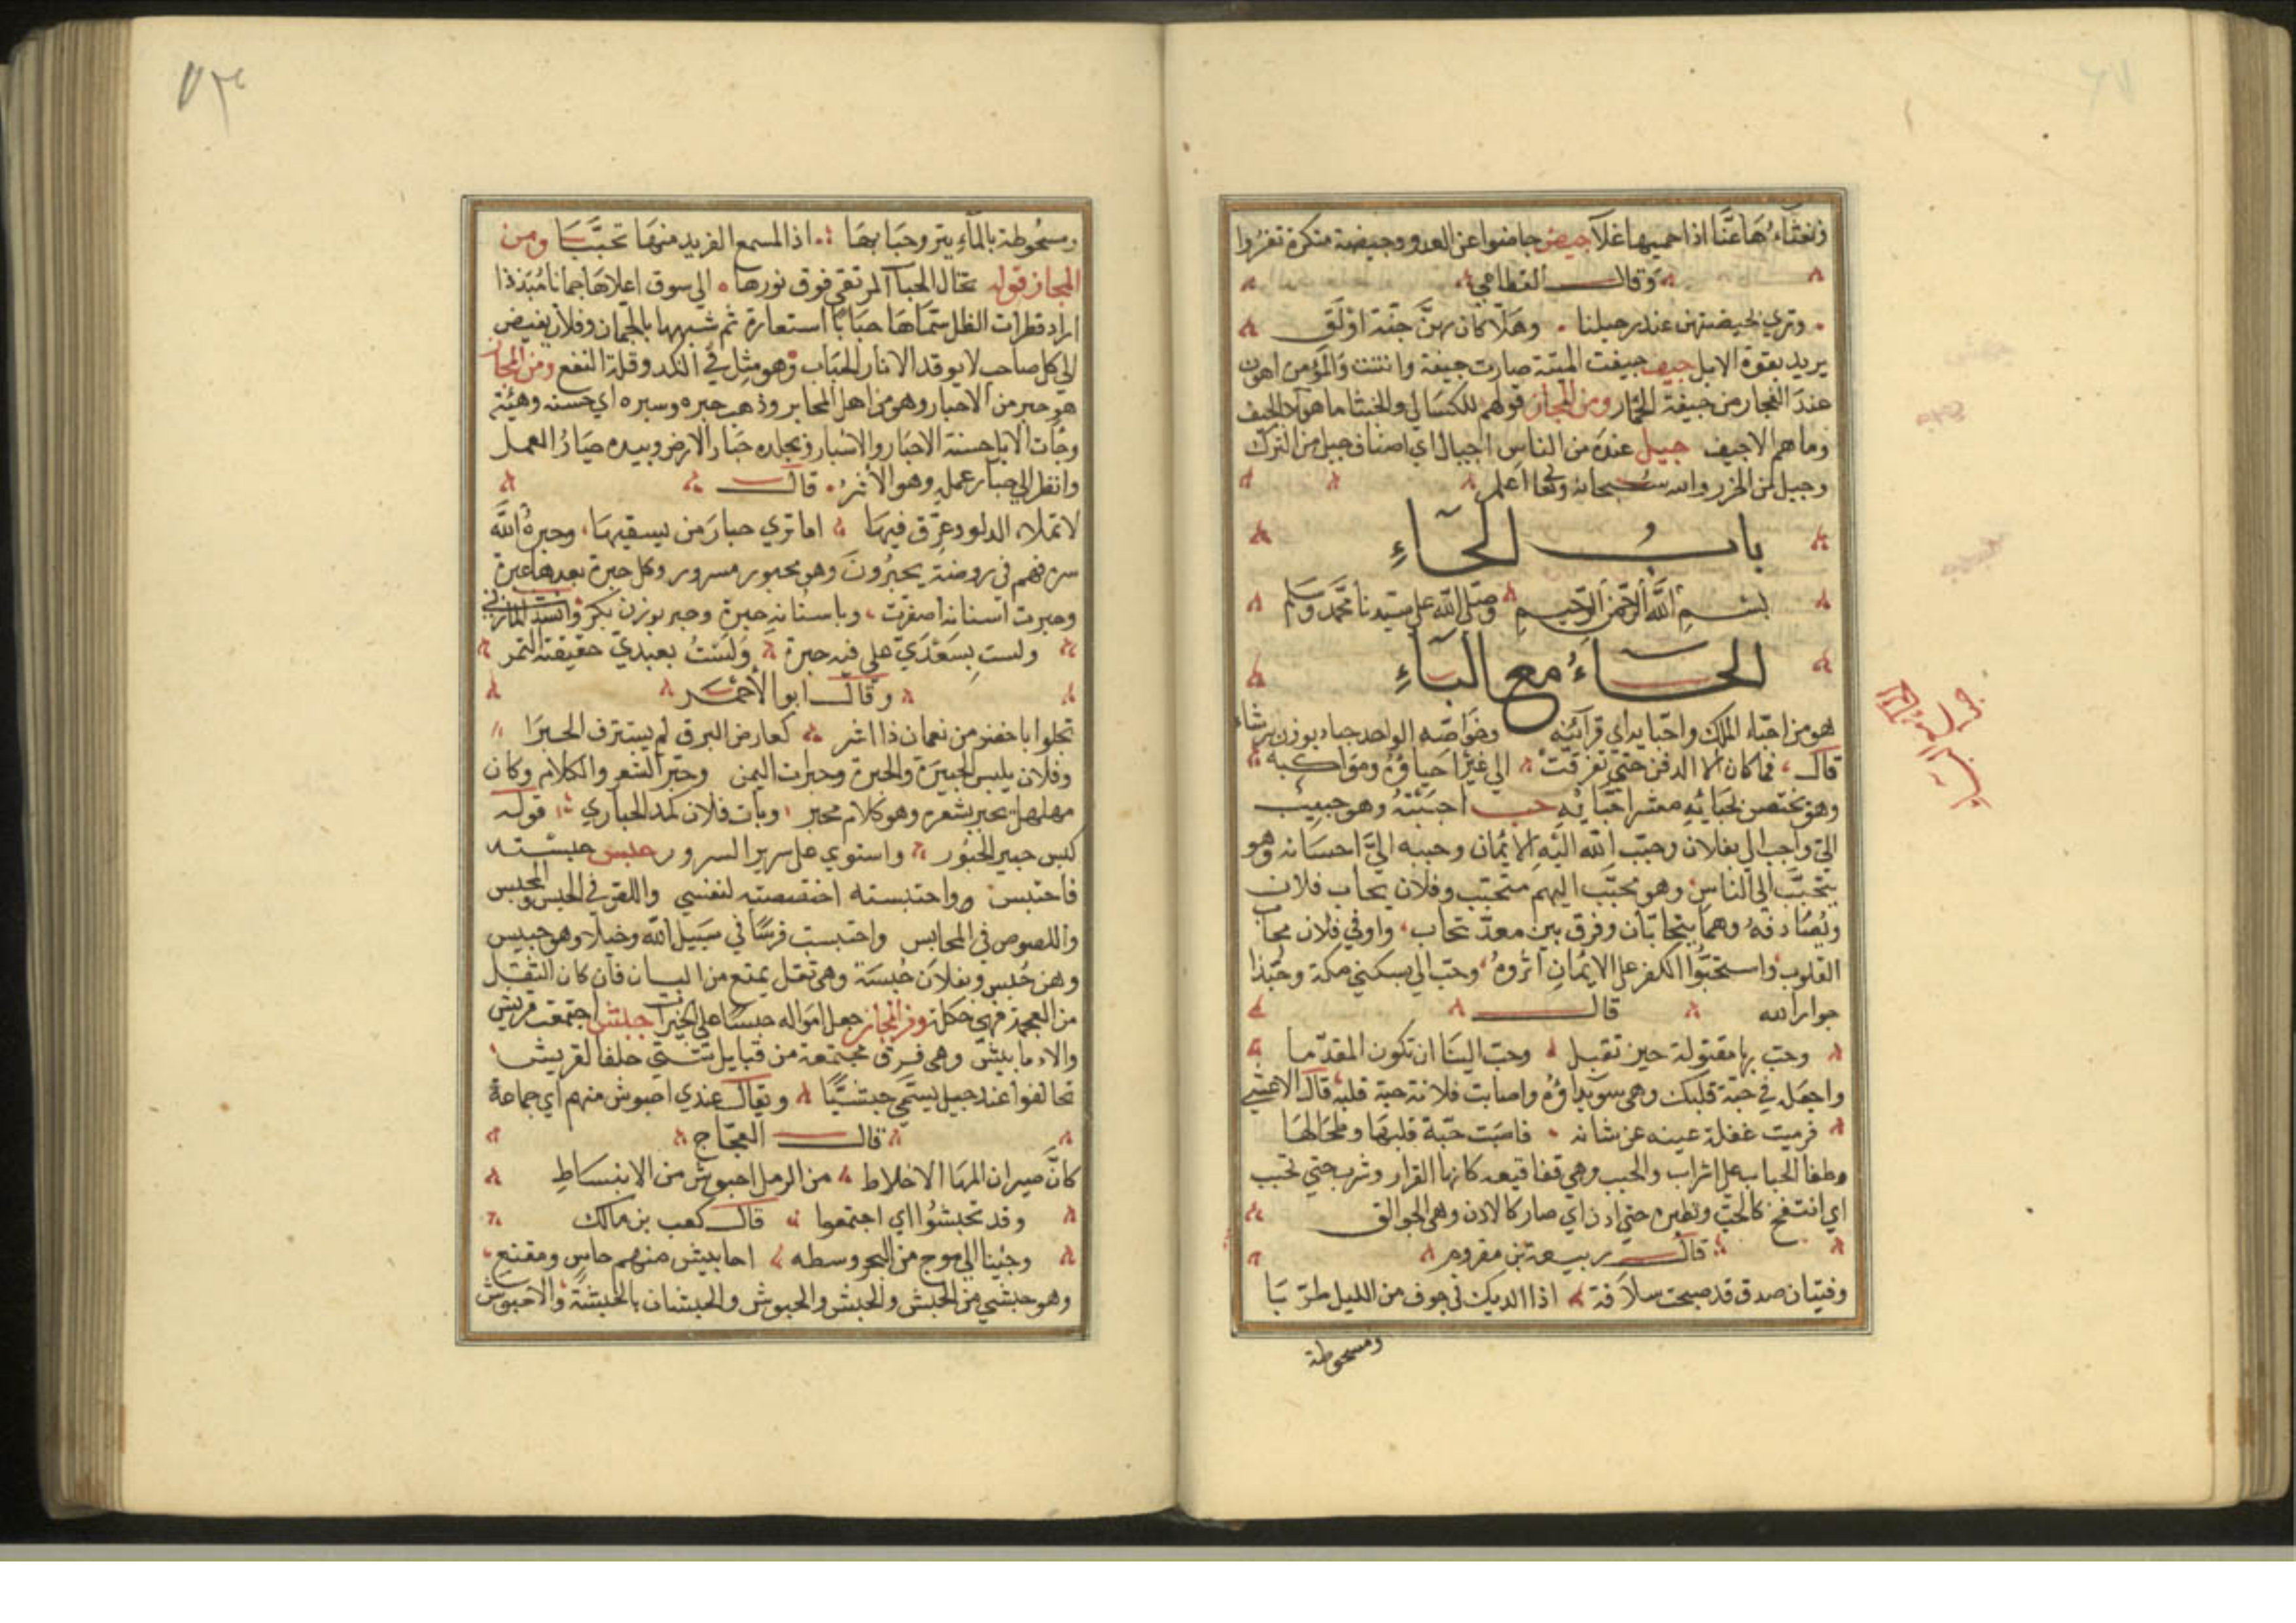 وقال القطامي
وتري لجيضتهن عند رحيلنا وهلا كان بهن جنة اولق
يريد بقوة الابل جيف جيفت الميتة صارت جيفة وانتنت والمؤمن اهون
عند الفجار من جيفة الحمار ومن المجاز قولهم للكسالي والخبثا ما هولا الجيف
وما هم الا جيف جيل عنده من الناس اجيال اي اصناف جيل من الترك
وجيل من الخزر والله سبحانه وتعا اعلم
باب الحآء
بسم الله الرحمن الرحيم وصلى الله على سيدنا محمد وسلم
الحآء مع البآء
هو من احبآء الملك واحبايه اي قرآئبه وخواصه الواحد حبا بوزن رشاء
قال فما كان الا الدفن حتي تفرقت الي غيره احباؤه ومواكبه
وهو مختص بحبائه معشر احبائه حب احببته وهو حبيب
الي واحب الي بفلان وحبب الله اليه الايمان وحببه الي احسانه وهو
يتحبب الي الناس وهو محبب اليهم متحبب وفلان يحاب فلان
ويصادقه وهما يتحابان وفرق بين معد تحاب واوتي فلان محاب
القلوب واستحبوا الكفر على الايمان اثروه وحب الي بسكني مكة وحبذا
جوار الله قال
وحب بها مقتولة حين تقبل وحب الينا ان تكون المقدما
واجعله في حبة قلبك وهي سويداؤه واصابت فلانة حبة قلبه قال الاعشي
فرميت غفلة عينه عن شاته فاصبت حبة قلبها وطحالها
وطفا الحباب على الشراب والحبب وهي فقاقيعه كانها القرار وشرب حتي تحبب
اي انتفخ كالحب ونظيره حتي ادن اي صار كالادن وهي الجوالق
قال ربيعة بن مقروم
وفتيان صدق قد صبحت سلافة اذا الديك في جوف من الليل طربا
ومسحوطة
ومسحوطة بالمآء ينزو حبابها اذا المسمع الغريد منها تحببا ومن
المجاز قوله تخال الحباب المرتقي فوق نورها الي سوق اعلاها جمانا مبذذا
اراد قطرات الظل سماها حبابا استعارة ثم شبهها بالجمان وفلان بغيض
الي كل صاحب لا يوقد الا نار الحباب وهو مثل في النكد وقلة النفع ومن المجاز
هو حبر من الاحبار وهو من اهل المحابر وذهب حبره وسبره اي حسنه وهيئته
وجآت الابل حسنة الاحبار والاسبار وبجلده حبار الارض وبيده حبار العمل
وانظر الي حبار عمله وهو الاثر قال
لا تملاء الدلو وعرق فيها اما تري حبار من يسقيها وحبره الله
سره فهم في روضة يحبرون وهو محبور مسرور وكل حبرة بعدها عبرة
وحبرت اسنانه اصفرت وباسنانه حبرة وحبر بوزن بكر وانشد المازني
ولست بسعدي على فيه حبرة ولست بعبدي حقيقته التمر
وقال ابو الاحمر
تجلوا باخضر من نعمان ذا اشر كعارض البرق لم يستترف الحبرا
وفلان يلبس الحبيرة والحبرة وحبرات اليمن وحبر الشعر والكلام وكان
مهلهل يحبر شعره وهو كلام محبر ومات فلان كمد الحباري قوله
لبس حبير الحبور واستوي على سرير السرور حبس حبسته
فاحتبس واحتبسته اختصصته لنفسي واللقر في الحبس والمحبس
واللصوص في المحابس واحتبست فرسا في سبيل الله وخيلا وهو حبيس
وهن حبس وبفلان حبسة وهي ثقل يمنع من البيان فان كان الثقل
من العجمة فهي حكلة ومن المجاز جعل امواله حبسا على الخيرات حبش اجتمعت قريش
والاحابيش وهي فرق مجتمعة من قبايل شتي حلفا لقريش
تحالفوا عند جبل يسمي حبشيا ويقال عندي احبوش منهم اي جماعة
قال العجاج
كان صيران المها الاخلاط من الرمل احبوش من الانبساط
وقد تحبشوا اي اجتمعوا قال كعب بن مالك
وجئنا الي موج من البحر وسطه احابيش منهم حاسر ومقنع
وهو حبشي من الحبش والحبش والحبوش والحبشان بالحبشة والاحبوش